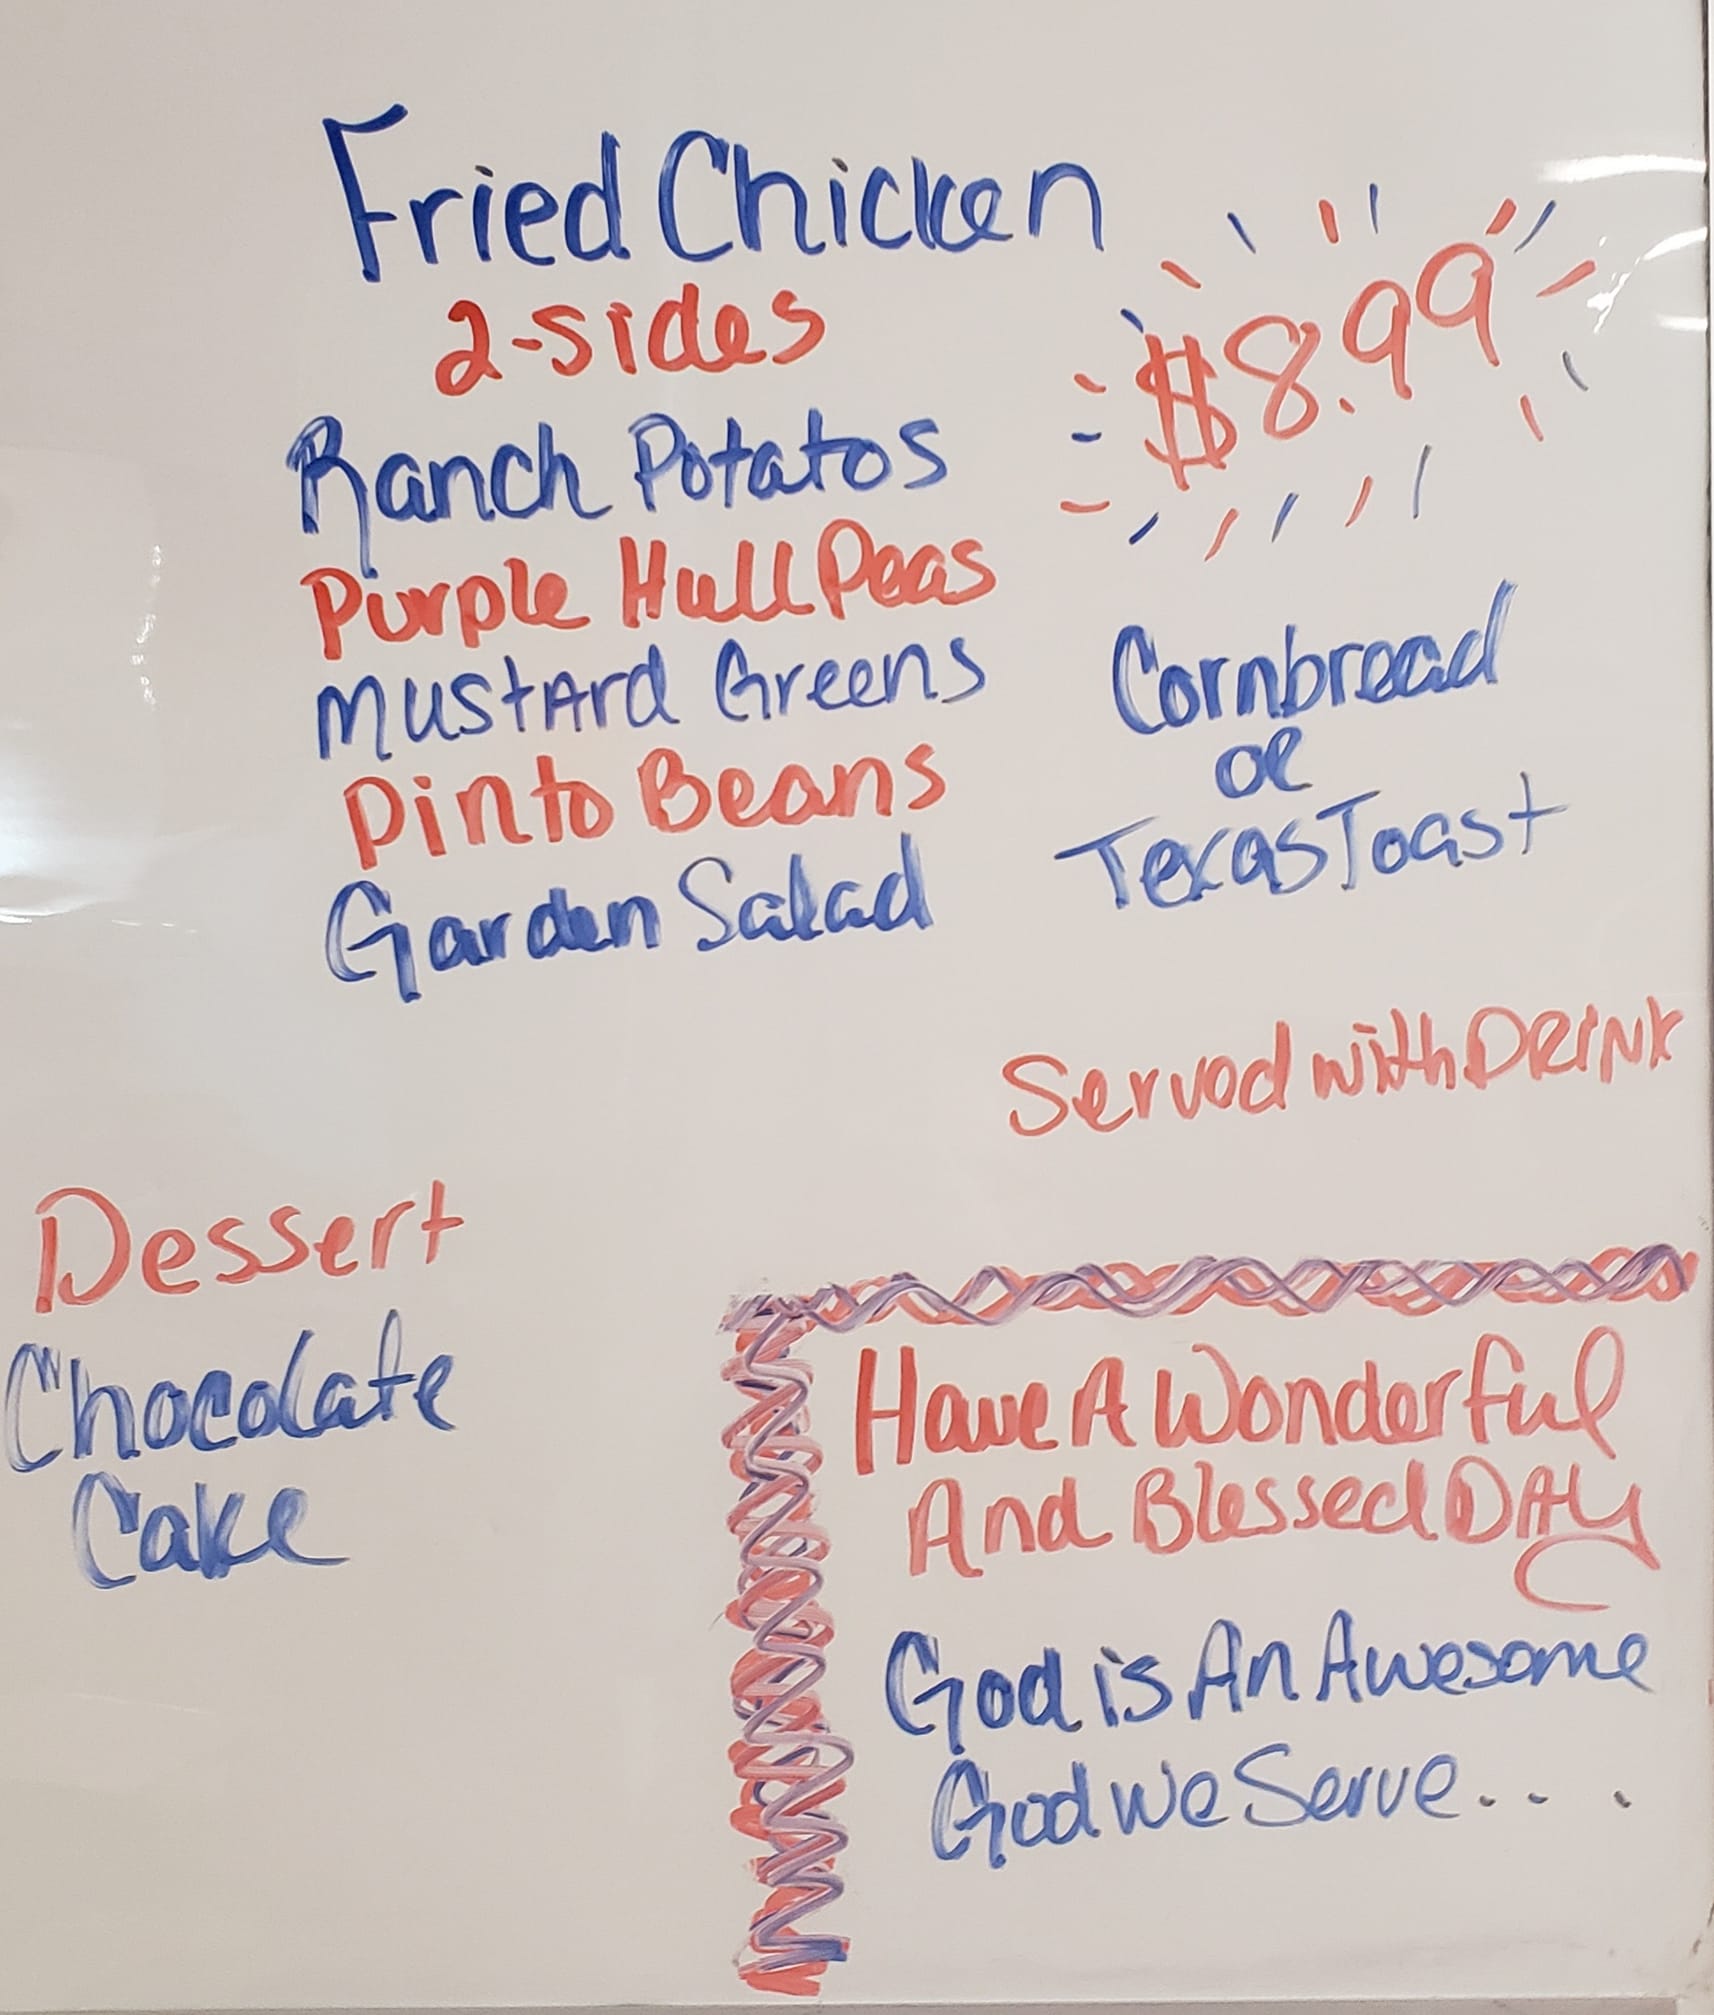 Fried Chicken
2-sides
$8.99
Ranch Potatos
Purple Hull Peas
Mustard Greens
Pinto Beans
Garden Salad
Cornbread
or
Texas Toast
Served with DRINK
Dessert
Chocolate
Cake
Have A Wonderful
And Blessed DAY
God is An Awesome
God we Serve....